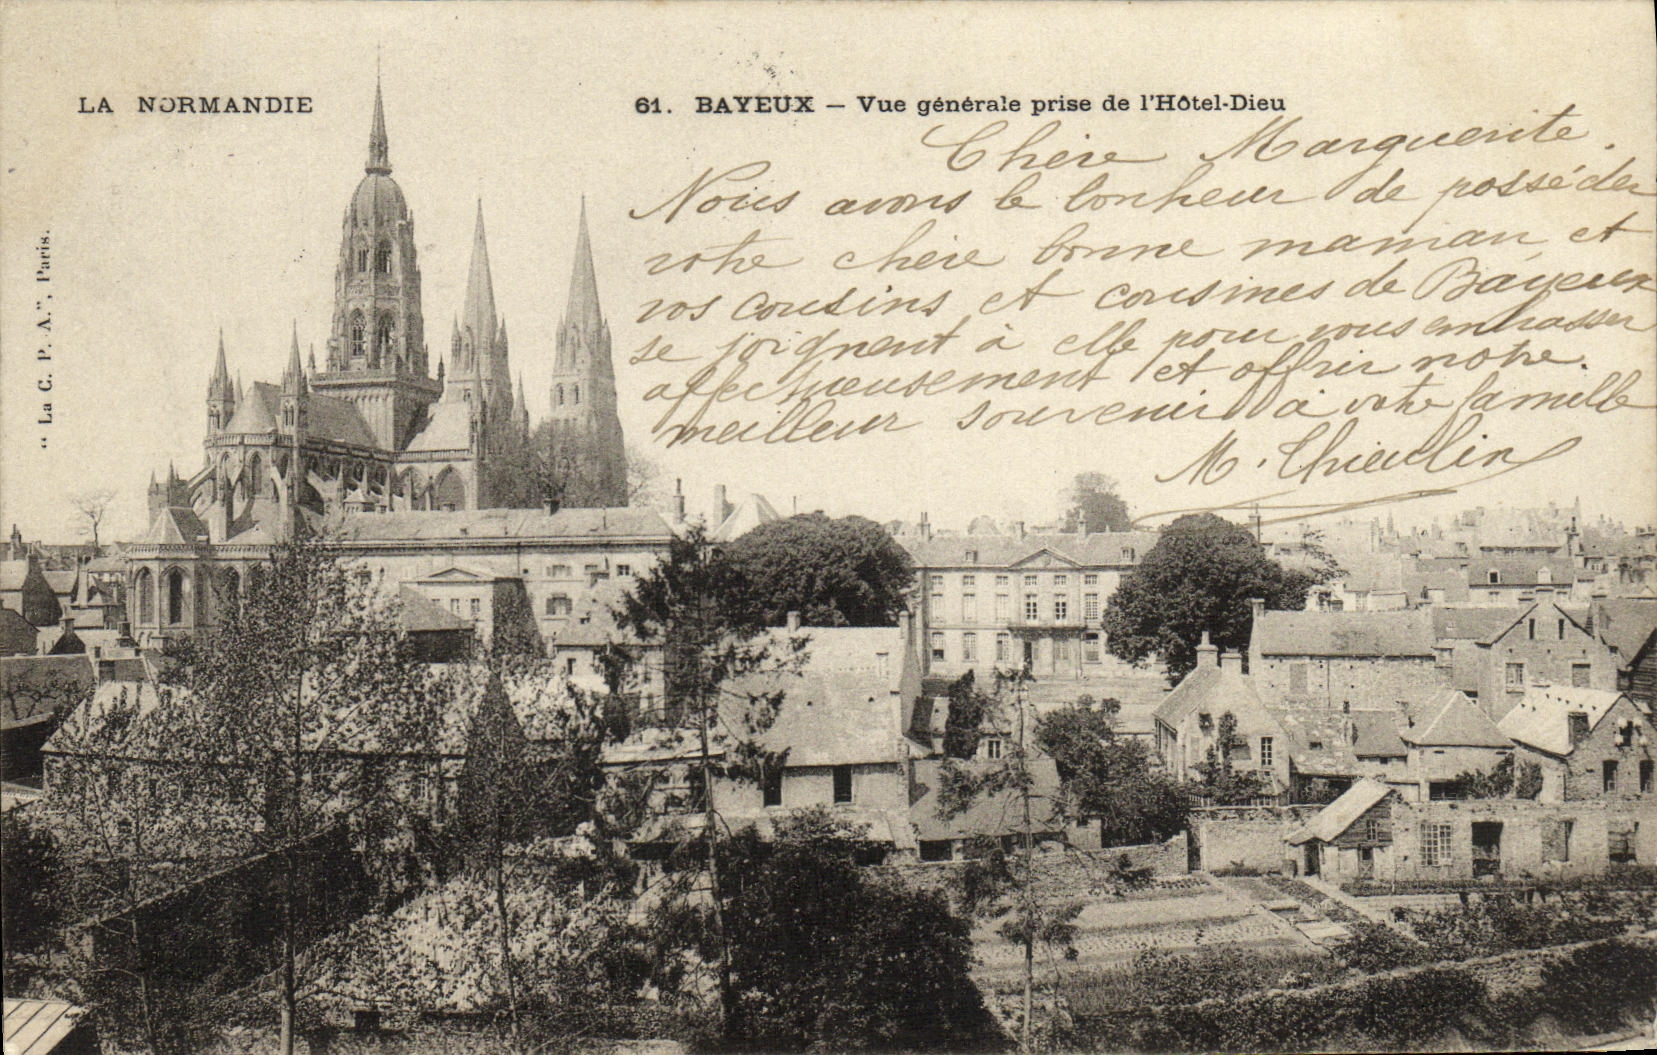 LA NORMANDIE
61. BAYEUX — Vue générale prise de l'Hôtel-Dieu
Chère Marguerite.
Nous avons le bonheur de posséder
votre chère bonne maman et
vos cousins et cousines de Bayeux
se joignent à elle pour vous embrasser
affectueusement et offrir notre
meilleur souvenir à votre famille
M. Thieulin
“ La C. P. A.”, Paris.